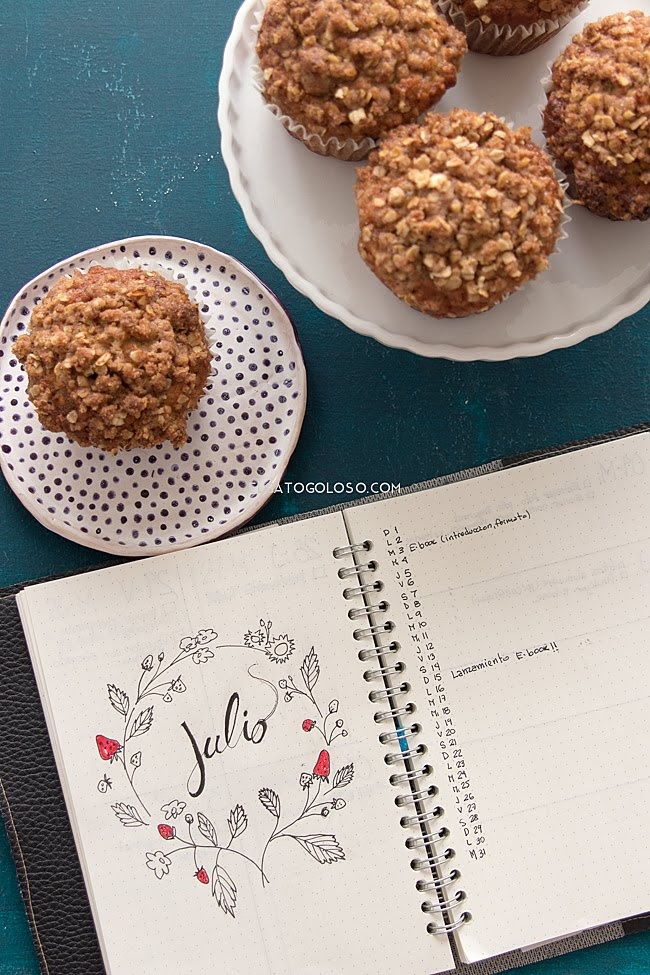 ATOGOLOSO.COM
Julio
D 1
L 2
M 3 E-book (introduccion, formato)
M 4
J 5
V 6
S 7
D 8
L 9
M 10
M 11
J 12
V 13
S 14
D 15 Lanzamiento E-book!!
L 16
M 17
M 18
J 19
V 20
S 21
D 22
L 23
M 24
M 25
J 26
V 27
S 28
D 29
L 30
M 31